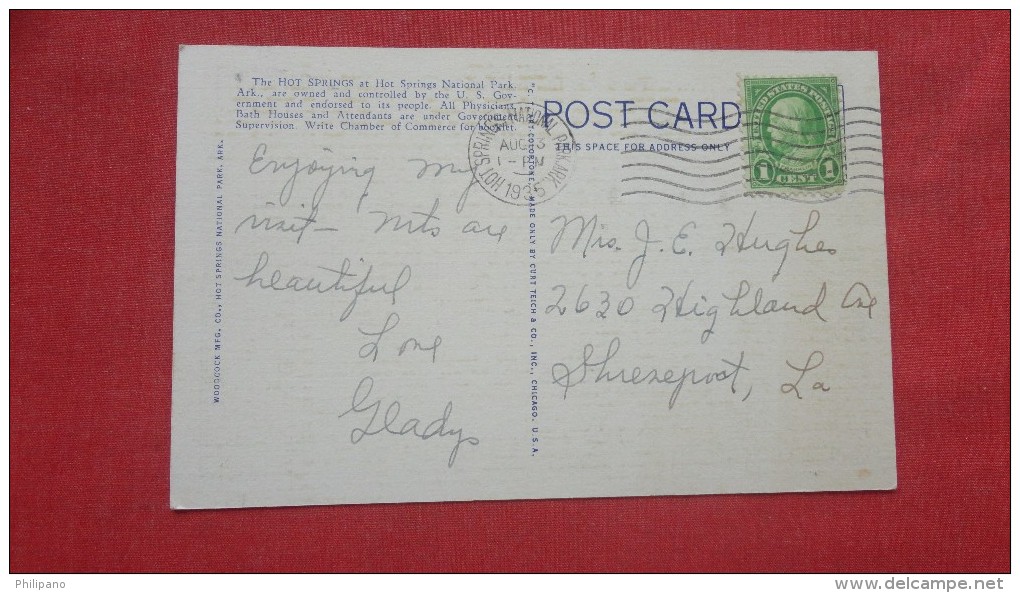 The HOT SPRINGS at Hot Springs National Park,
Ark., are owned and controlled by the U. S. Gov-
ernment and endorsed to its people. All Physicians,
Bath Houses and Attendants are under Government
Supervision. Write Chamber of Commerce for booklet.
Enjoying my
visit - Mts are
beautiful
Love
Gladys
WOODCOCK MFG. CO., HOT SPRINGS NATIONAL PARK, ARK.
MADE ONLY BY CURT TEICH & CO., INC., CHICAGO, U.S.A.
HOT SPRINGS NATIONAL PARK. ARK.
AUG 3
1 - PM
1935
POST CARD
THIS SPACE FOR ADDRESS ONLY
UNITED STATES POSTAGE
1 CENT 1
Mrs. J. E. Hughes
2630 Highland Ave
Shreveport, La
Philipano
delcampe.net